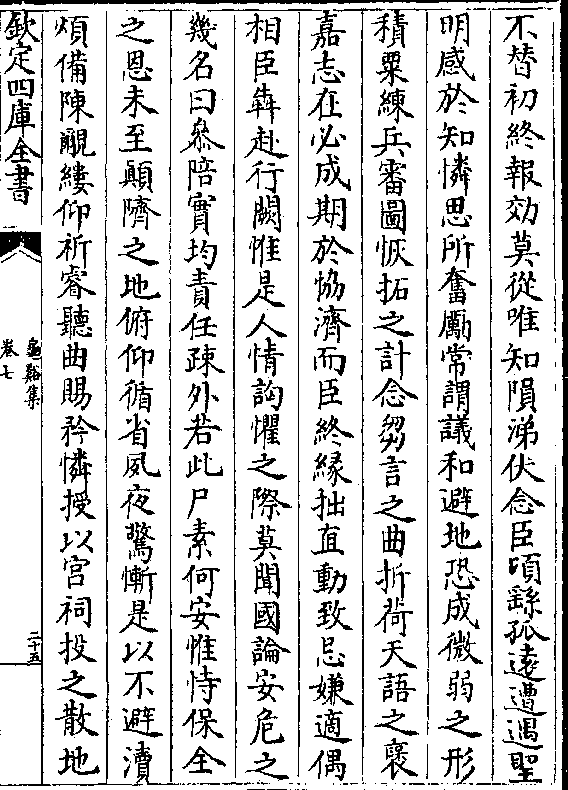 不替初終報効莫從唯知隕涕伏念臣頃繇孤遠遭遇聖
明感於知憐思所奮勵常謂議和避地恐成微弱之形
積粟練兵審圖恢拓之計念芻言之曲折荷天語之襃
嘉志在必成期於恊濟而臣終緣拙直動致忌嫌適偶
相臣犇赴行闕惟是人情訩懼之際莫聞國論安危之
幾名曰叅陪實均責任疎外若此尸素何安惟恃保全
之恩未至顛隮之地俯仰循省夙夜驚慚是以不避瀆
煩備陳覼縷仰祈睿聽曲賜矜憐授以宫祠投之散地
欽定四庫全書
龜谿集
卷七
二十五